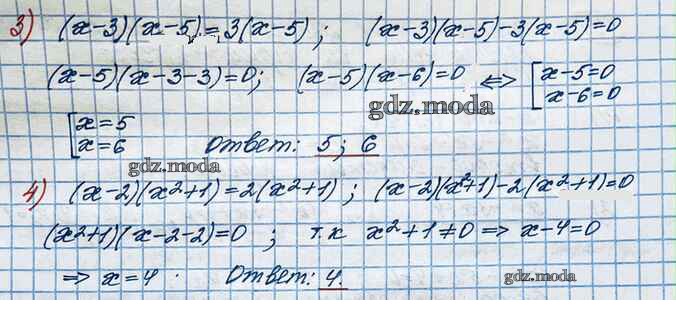 3) (x-3)(x-5)=3(x-5); (x-3)(x-5)-3(x-5)=0
(x-5)(x-3-3)=0; (x-5)(x-6)=0 ⟺ [x-5=0
x-6=0
gdz.moda
[x=5
x=6 Ответ: 5; 6
gdz.moda
4) (x-2)(x²+1)=2(x²+1); (x-2)(x²+1)-2(x²+1)=0
(x²+1)(x-2-2)=0; т.к x²+1≠0 ⟹ x-4=0
⟹ x=4. Ответ: 4.
gdz.moda
gdz.moda